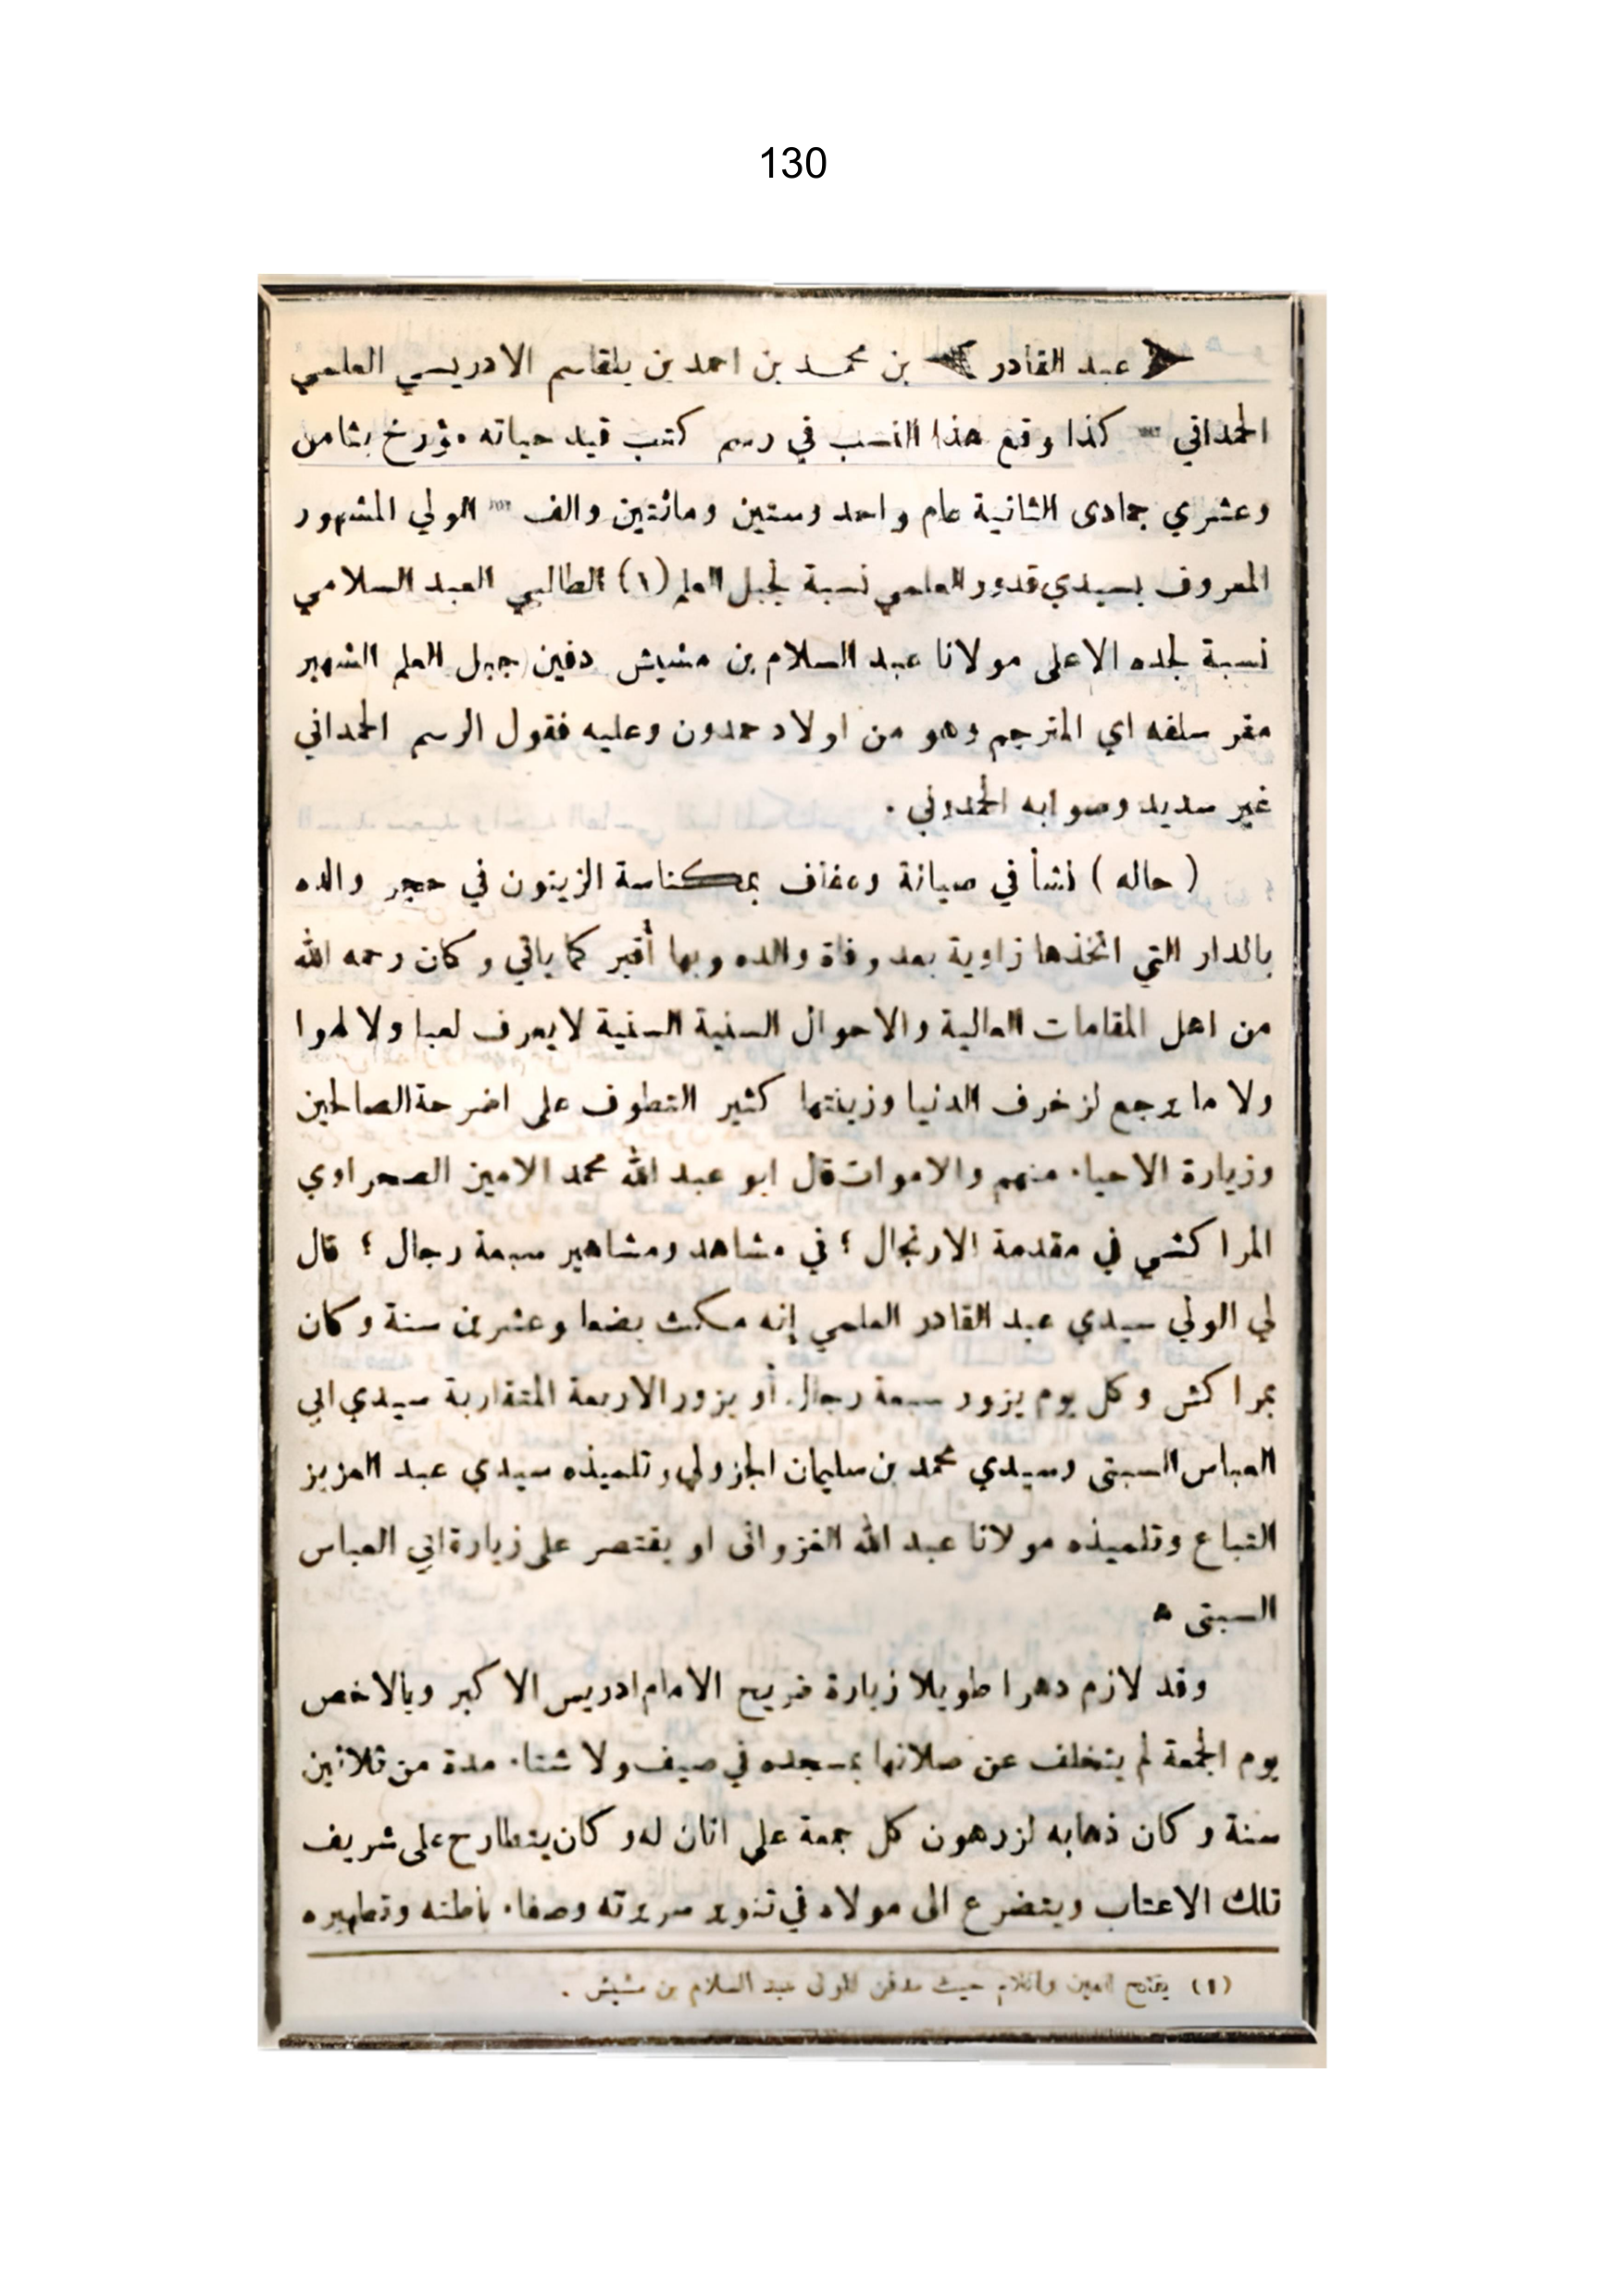 130
عبد القادر بن محمد بن احمد بن بلقاسم الادريسي العلمي
الحمداني كذا وقع هذا النسب في رسم كتب قيد حياته مؤرخ بثامن
وعشري جمادى الثانية عام واحد وستين ومائتين والف الولي المشهور
المعروف بسيدي قدور العلمي نسبة لجبل العلم (١) الطالبي العبد السلامي
نسبة لجده الاعلى مولانا عبد السلام بن مشيش دفين جبل العلم الشهير
مقر سلفه اي المترجم وهو من اولاد حمدون وعليه فقول الرسم الحمداني
غير سديد وصوابه الحمدوني .
( حاله ) نشأ في صيانة وعفاف بمكناسة الزيتون في حجر والده
بالدار التي اتخذها زاوية بعد وفاة والده وبها أقبر كما ياتي وكان رحمه الله
من اهل المقامات العالية والاحوال السنية السنية لا يعرف لعبا ولا لهوا
ولا ما يرجع لزخرف الدنيا وزينتها كثير التطوف على اضرحة الصالحين
وزيارة الاحياء منهم والاموات قال ابو عبد الله محمد الامين الصحراوي
المراكشي في مقدمة الارتجال ؛ في مشاهد ومشاهير سبعة رجال ؛ قال
لي الولي سيدي عبد القادر العلمي إنه مكث بضعا وعشرين سنة وكان
بمراكش وكل يوم يزور سبعة رجال أو يزور الاربعة المتقاربة سيدي ابي
العباس السبتى وسيدي محمد بن سليمان الجزولي وتلميذه سيدي عبد العزيز
التباع وتلميذه مولانا عبد الله الغزوانى او يقتصر على زيارة ابي العباس
السبتى ه
وقد لازم دهرا طويلا زيارة ضريح الامام ادريس الاكبر وبالاخص
يوم الجمعة لم يتخلف عن صلاتها بمسجده في صيف ولا شتاء مدة من ثلاثين
سنة وكان ذهابه لزرهون كل جمعة على اتان له وكان يتطارح على شريف
تلك الاعتاب ويتضرع الى مولاه في تنوير سريرته وصفاء باطنه وتطهيره
(١) بفتح العين واللام حيث مدفن المولى عبد السلام بن مشيش .